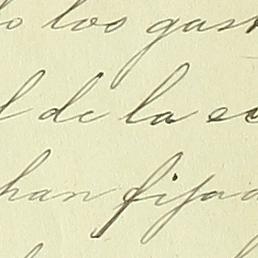 los gas
de la
han fija